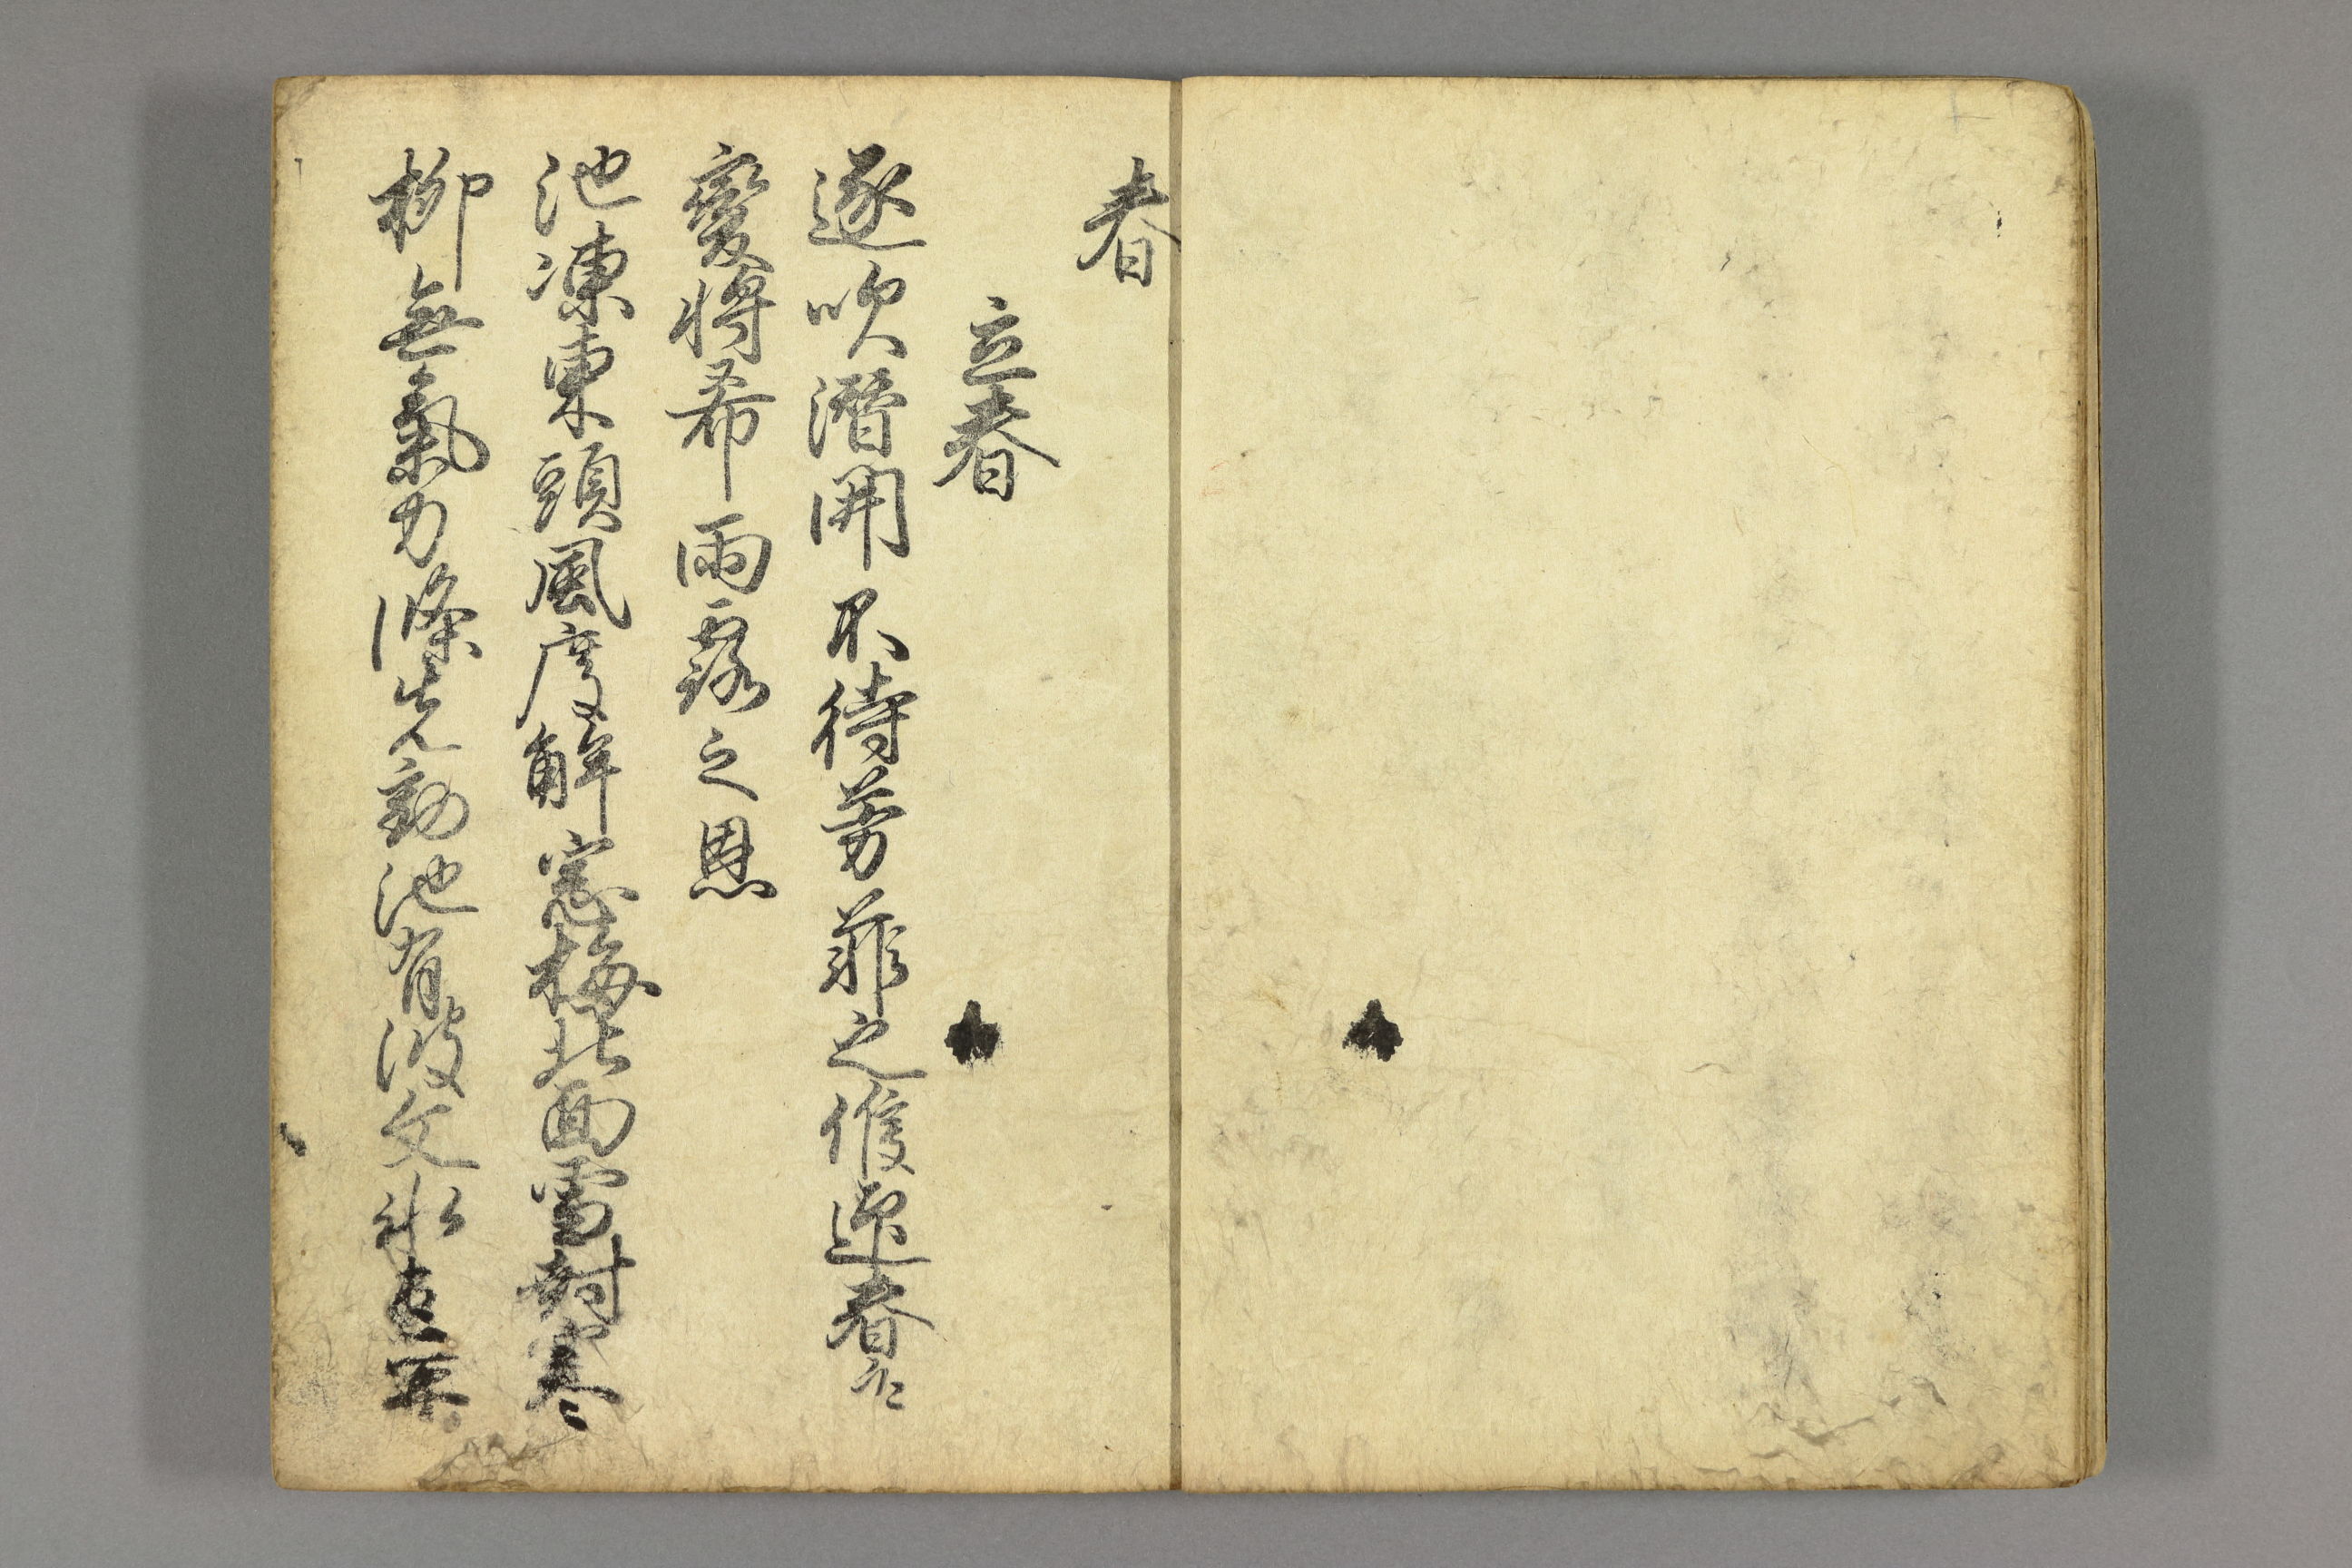 春
立春
逐吹潜開不待芳菲之候迎春乍
變将希雨露之恩
池凍東頭風度解窓梅北面雪封寒
柳無氣力條先動池有波文氷盡開